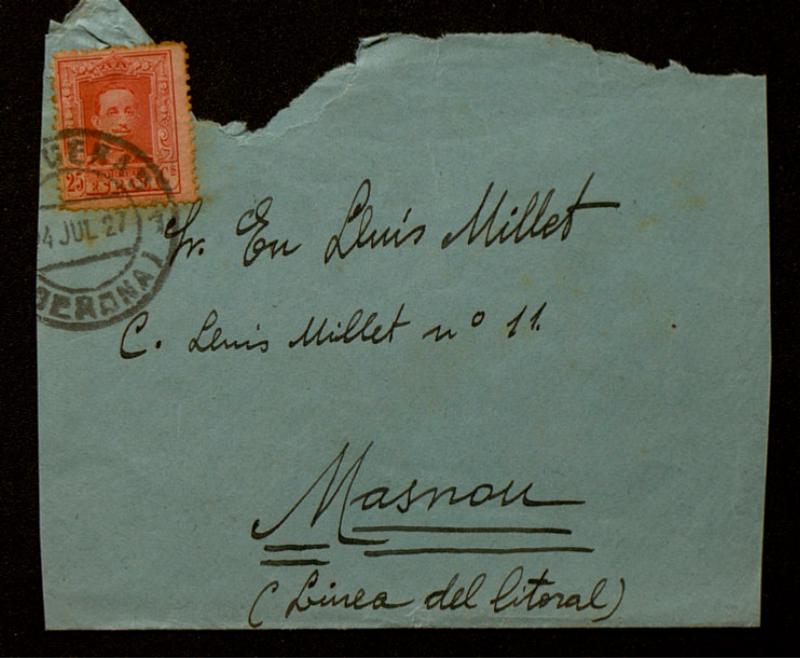 25
CORREOS
ESPAÑA
4 JUL 27
(GERONA)
Sr. En Lluis Millet
C. Lluis Millet nº 11.
Masnou
(Linea del litoral)